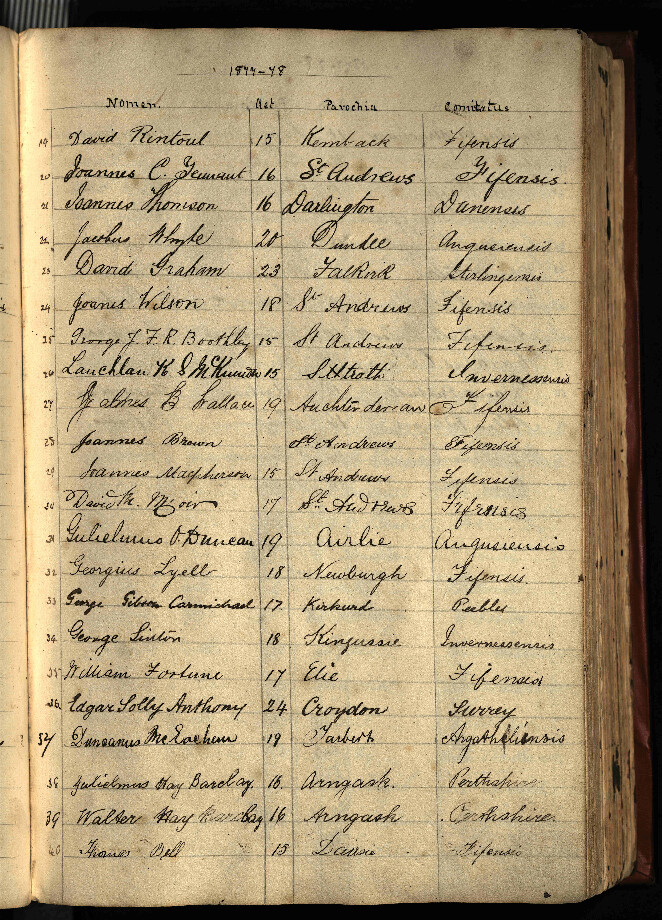 1877-78
Nomen. Aet Parochia Comitatus
19 David Rintoul 15 Kemback Fifensis
20 Joannes C. Tennant 16 St Andrews Fifensis.
21 Joannes Thomson 16 Darlington Dunensis
22 Jacobus Whyte 20 Dundee Angusiensis
23 David Graham 23 Falkirk Sterlingensis
24 Joanes Wilson 18 St Andrews Fifensis
25 George J. F. R. Boothby 15 St Andrews Fifensis.
26 Lauchlan K S 15 Invernessensis
27 James B Wallace 19 Auchterderran Fifensis
28 Joannes Brown St Andrews Fifensis
29 Joannes Macpherson 15 St Andrews Fifensis
30 David M. Moir 17 St. Andrews Fifensis
31 Gulielmus O. Duncan 19 Airlie Angusiensis
32 Georgius Lyell 18 Newburgh Fifensis
33 George Gibson Carmichael 17 Kirkurd Peebles
34 George Sinton 18 Kingussie Invernessensis
35 William Fortune 17 Elie Fifensis
36 Edgar Solly Anthony 24 Croydon Surrey
37 Duncanus McEachern 19 Tarbert Argatheliensis
38 Gulielmus Hay Barclay. Arngask. Perthshire
39 Walter Hay Barclay 16 Arngask Perthshire.
40 Thomas Bell 15 Fifensis